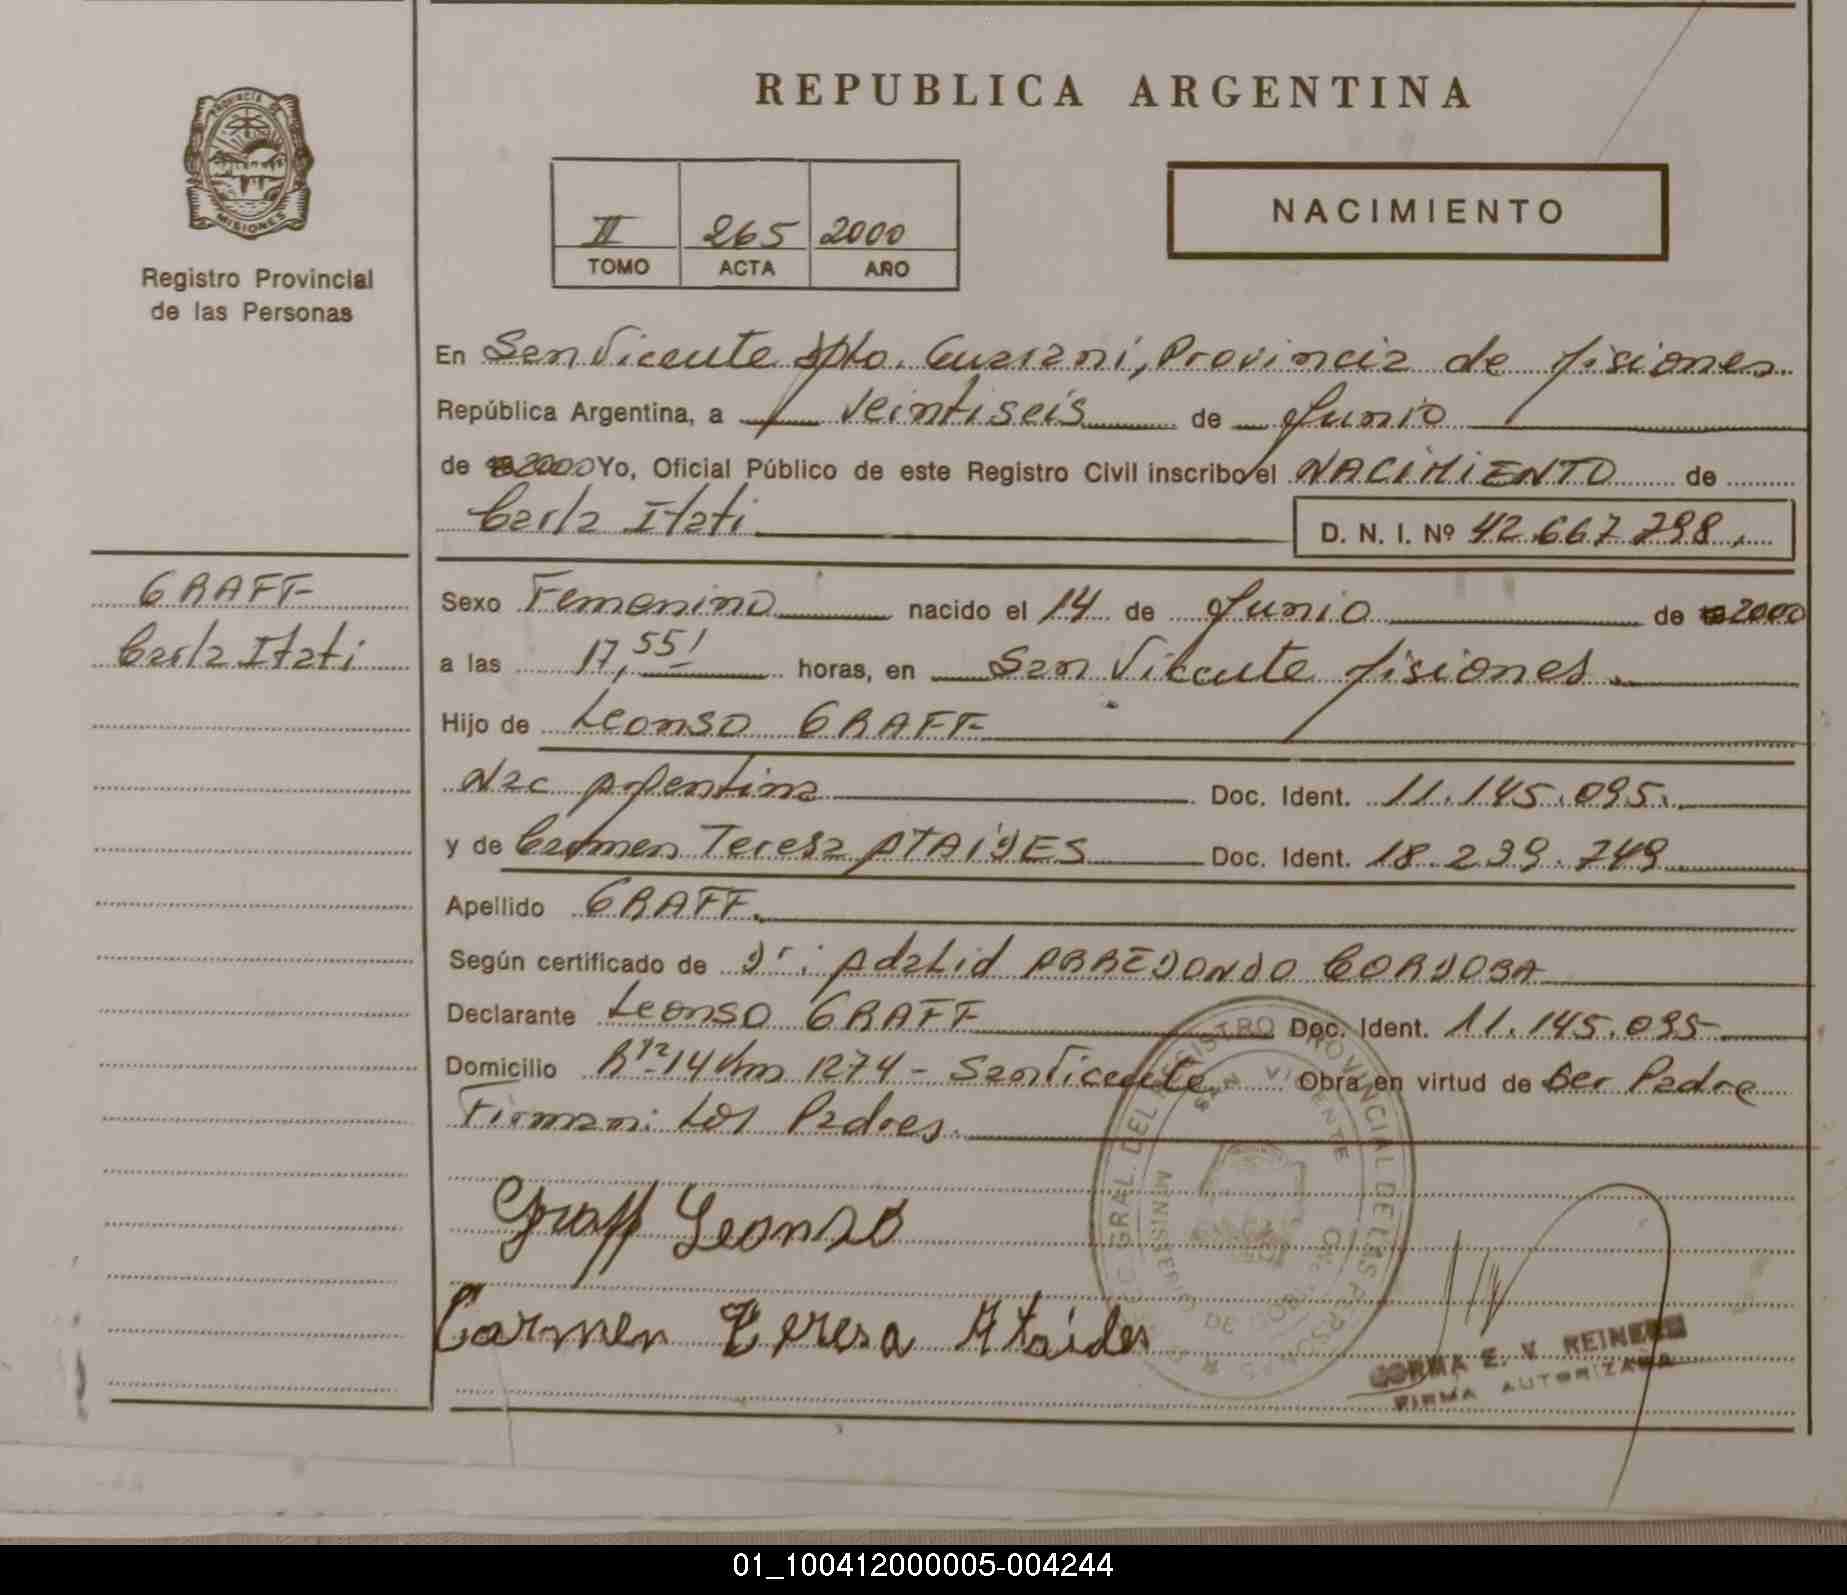 PROVINCIA DE
MISIONES
Registro Provincial
de las Personas
GRAFF
Carla Itati
REPUBLICA ARGENTINA
II 265 2000
TOMO ACTA AÑO
NACIMIENTO
En San Vicente Dpto. Guarani, Provincia de Misiones
República Argentina, a veintiseis de Junio
de 2000 Yo, Oficial Público de este Registro Civil inscribo el NACIMIENTO de
Carla Itati D. N. I. Nº 42.667.798
Sexo Femenino nacido el 14 de Junio de 2000
a las 17,55' horas, en San Vicente Misiones.
Hijo de Leonso GRAFF
Nac Argentina Doc. Ident. 11.145.095.
y de Carmen Teresa ATAIDES Doc. Ident. 18.239.749
Apellido GRAFF.
Según certificado de Dr: Adalid ARREDONDO CORDOBA
Declarante Leonso GRAFF Doc. Ident. 11.145.095
Domicilio Rta 14 Km 1274 - San Vicente Obra en virtud de Ser Padre
Firman: Los Padres.
Graff Leonso
Carmen Teresa Ataides
GRAL. DEL REGISTRO PROVINCIAL DE LAS PERSONAS
SAN VICENTE
MINISTERIO DE GOBIERNO
E. V. REINERS
FIRMA AUTORIZADA
01_100412000005-004244